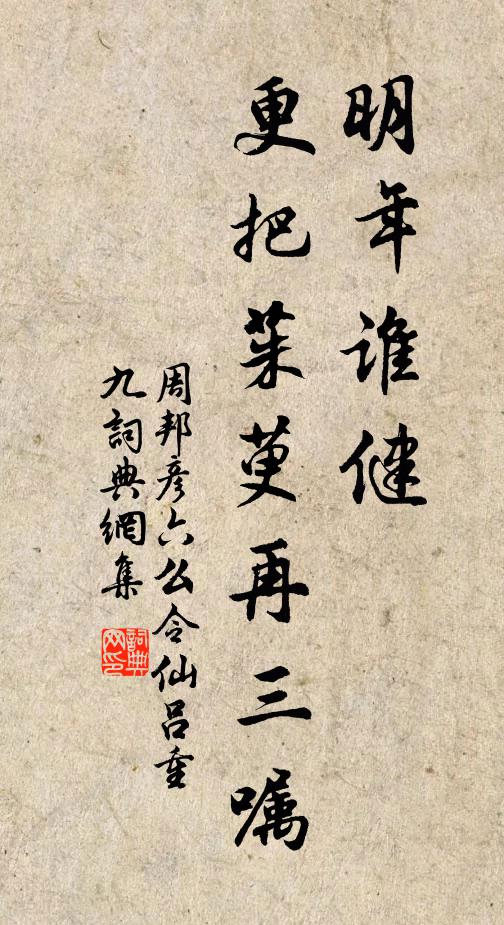 明年谁健
更把茱萸再三嘱
周邦彦六么令仙吕重
九詞典網集
詞典网印